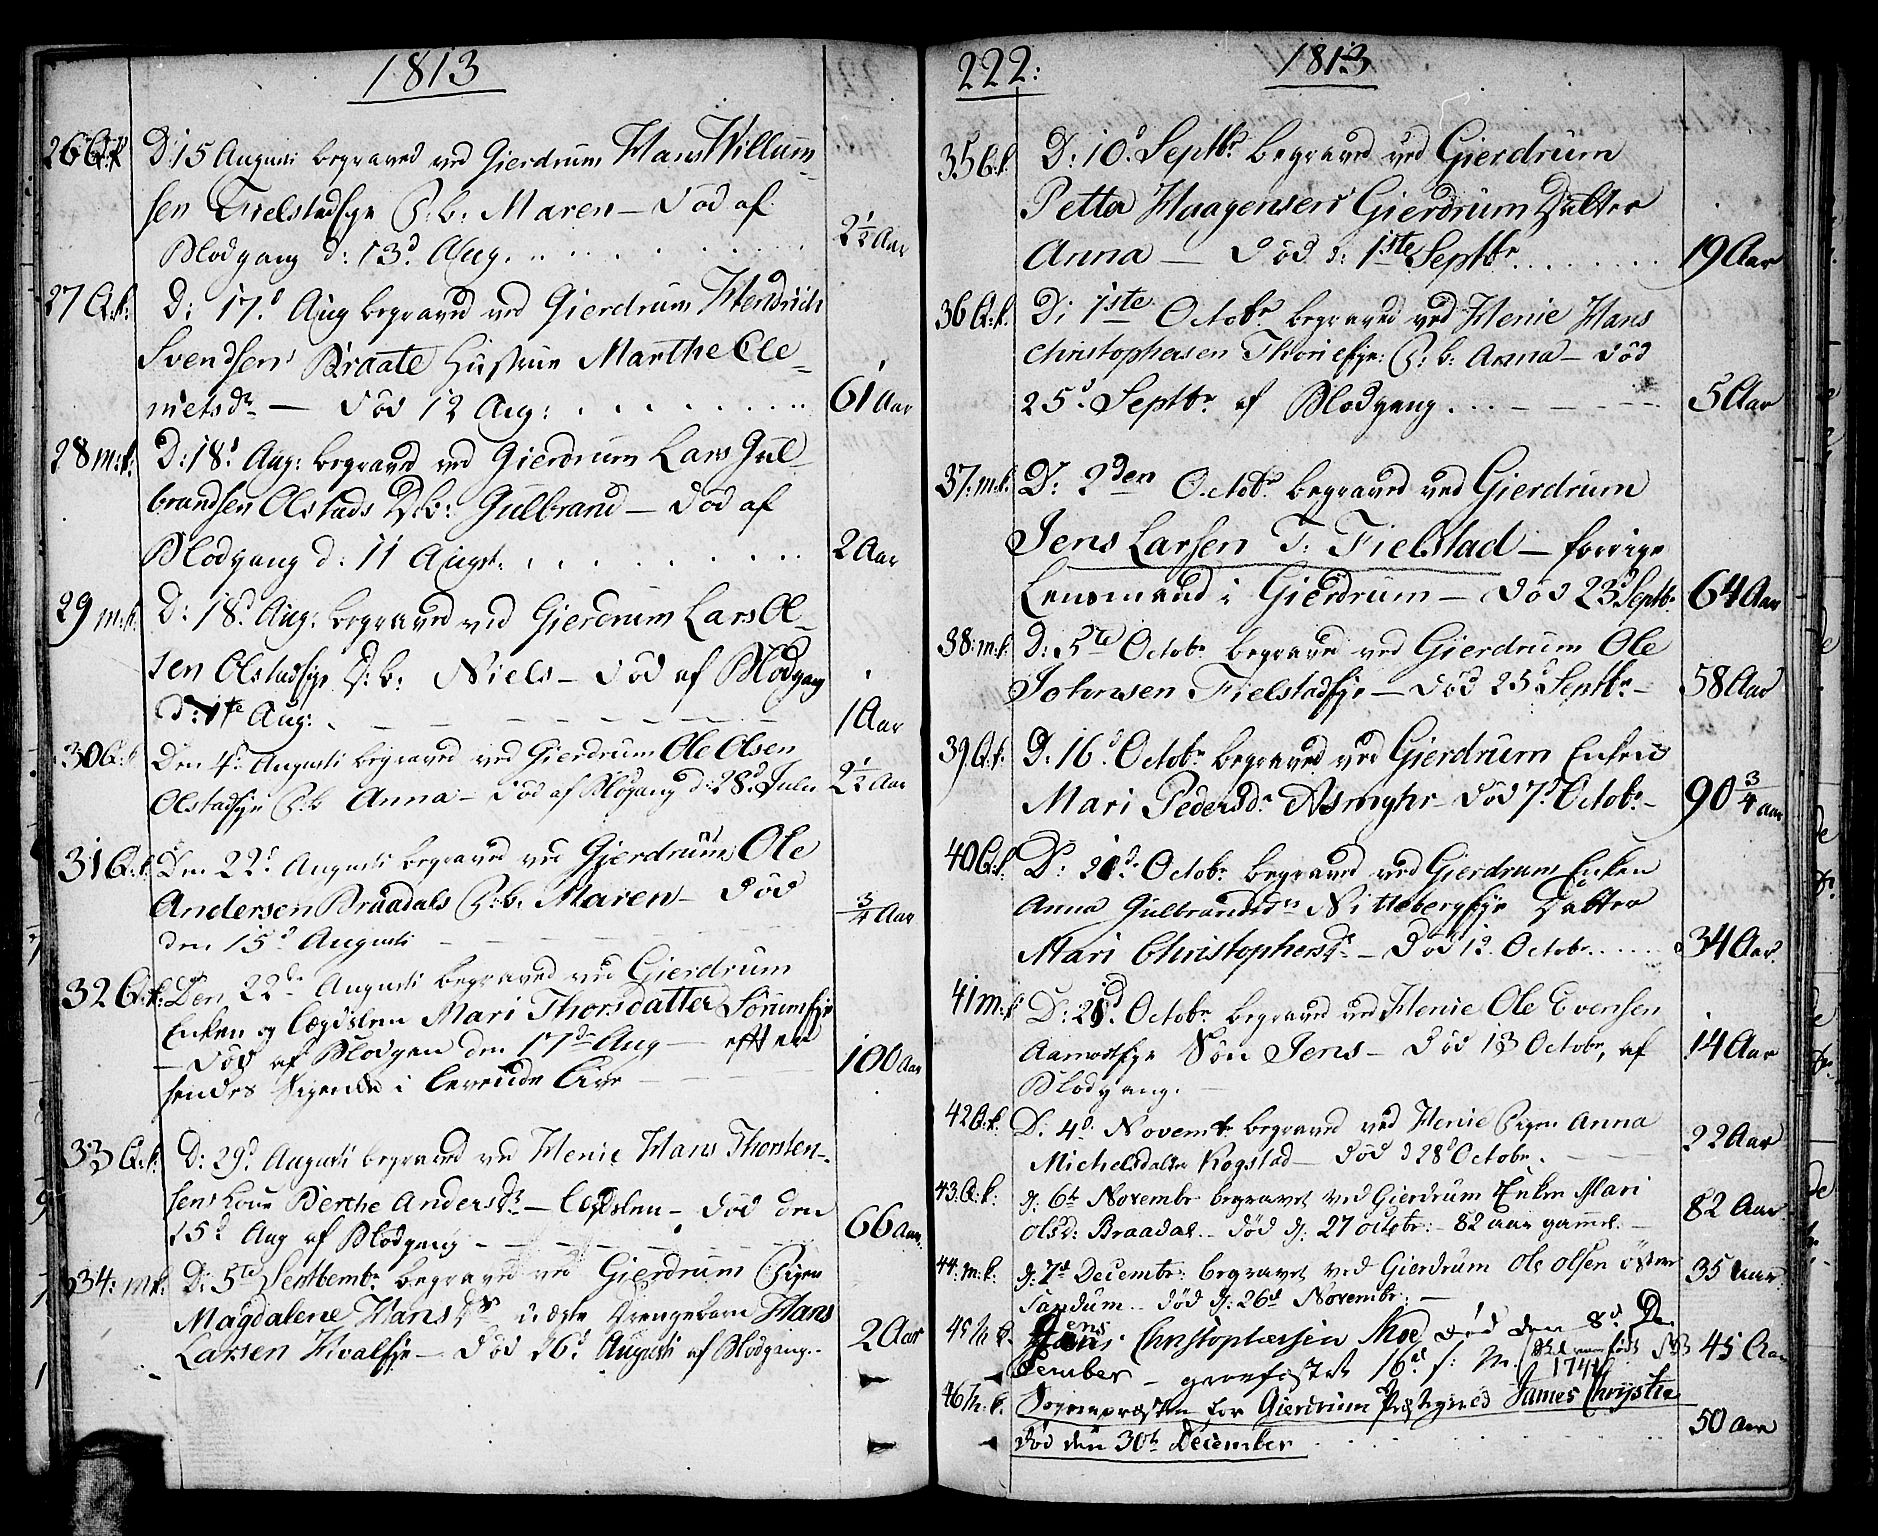 1813
26 Q:k D: 15 Augusti begraved ved Gierdrum Hans Willum-
sen Fielstadeje P:b: Maren – død af
Blodgang d: 13d Aug. . . . . . 2½ Aar
27 Q:k: D: 17d Aug begraved ved Gierdrum Hendrich
Svendsens Braate Hustrue Marthe Cle-
metsdr – død 12 Aug: . . . . . . 61 Aar
28 m:k: D: 18d Aug: begraved ved Gierdrum Lars Gul-
brandsen Olstads D:b: Gulbrand – død af
Blodgang d: 11 Augst: . . . . . . 2 Aar
29 m:k. D: 18d Aug: begraved ved Gierdrum Lars Ol-
sen Olstadeje D:b: Niels – død af Blodgang
d: 1te Aug: 1 Aar
30 Q:k Den 4d Augusti begraved ved Gierdrum Ole Olsen
Olstadeje P:b Anna – død af Blogang d: 28d Julii 2½ Aar
31 Q:k: Den 22d Augusti begraved ved Gierdrum Ole
Andersen Braadals P:b. Maren – død
den 15d Augusti ¾ Aar
32 Q:k: Den 22de Augusti begraved ved Gierdrum
Enken og Lægdslem Mari Thorsdatter Sørumeje
– død af Blodgan den 17de Aug – efter
hendes sigende i levende Live 100 Aar
33 Q:k: D: 29d Augusti begraved ved Henie Hans Thorsten-
sens Kone Berthe Andersdr – Legdslem – død den
15d Aug af Blodgang 66 Aar.
34: m:k: D: 5te Septembr begraved ved Gierdrum Pigen
Magdalene Hansdrs uægte Drengebarn Hans
Larsen Kvaleje – død 26d Augusti af Blodgang. 2 Aar
222: 1813
35 Q:k. D: 10d Septbr begraved ved Gierdrum
Petter Haagensens Gierdrum Datter
Anna – død d: 1ste Septbr . . . . . . 19 Aar
36 Q:k. D: 1ste Octobr begraved ved Henie Hans
Christophersen Thorieje: P:b: Anna – død
25d Septbr af Blodgang. . . . 5 Aar
37. m:k: D: 2den Octobr begraved ved Gierdrum
Jens Larsen T: Fielstad – forrige
Lensmand i Gierdrum – død 23d Septbr 64 Aar
38: m:k D: 5te Octobr begraved ved Gierdrum Ole
Johnsen Fielstadeje – død 25d Septbr – 58 Aar
39 Q:k: D. 16d Octobr begraved ved Gierdrum Enken
Mari Pedersdr Asmyhr – død 7d Octobr – 90 ¾ aar
40 Q:k: D: 21d Octobr begraved ved Gierdrum Enken
Anna Gulbrandsdrs Nittebergeje Datter
Mari Christophersdr – død 12 Octobr . . . . 34 Aar.
41 m:k D: 21d Octobr begraved ved Henie Ole Evensen
Aamodteje Søn Jens – død 13 Octobr, af
Blodgang. 14 Aar
42 Q:k. D: 4d Novembr begraved ved Henie Pigen Anna
Michelsdatter Kogstad – død d 28d Octobr. 22 Aar
43. Q:k: d: 6te Novembr begravet ved Gierdrum Enken Mari
Olsd: Braadal – død d: 27 octbr: – 82 aar gammel – 82 Aar
44: m:k: d: 7d Decembr: begravet ved Gierdrum Ole Olsen øster
Sandum – død d: 26d Novembr: – 35 aar
45 M.k. Jens Christophersen Moe død den 8d De
cember – 16d 45 Aar
46 M:k. Sognepræsten for Gierdrum Præstegield James Chrystie
død den 30te December 50 aar